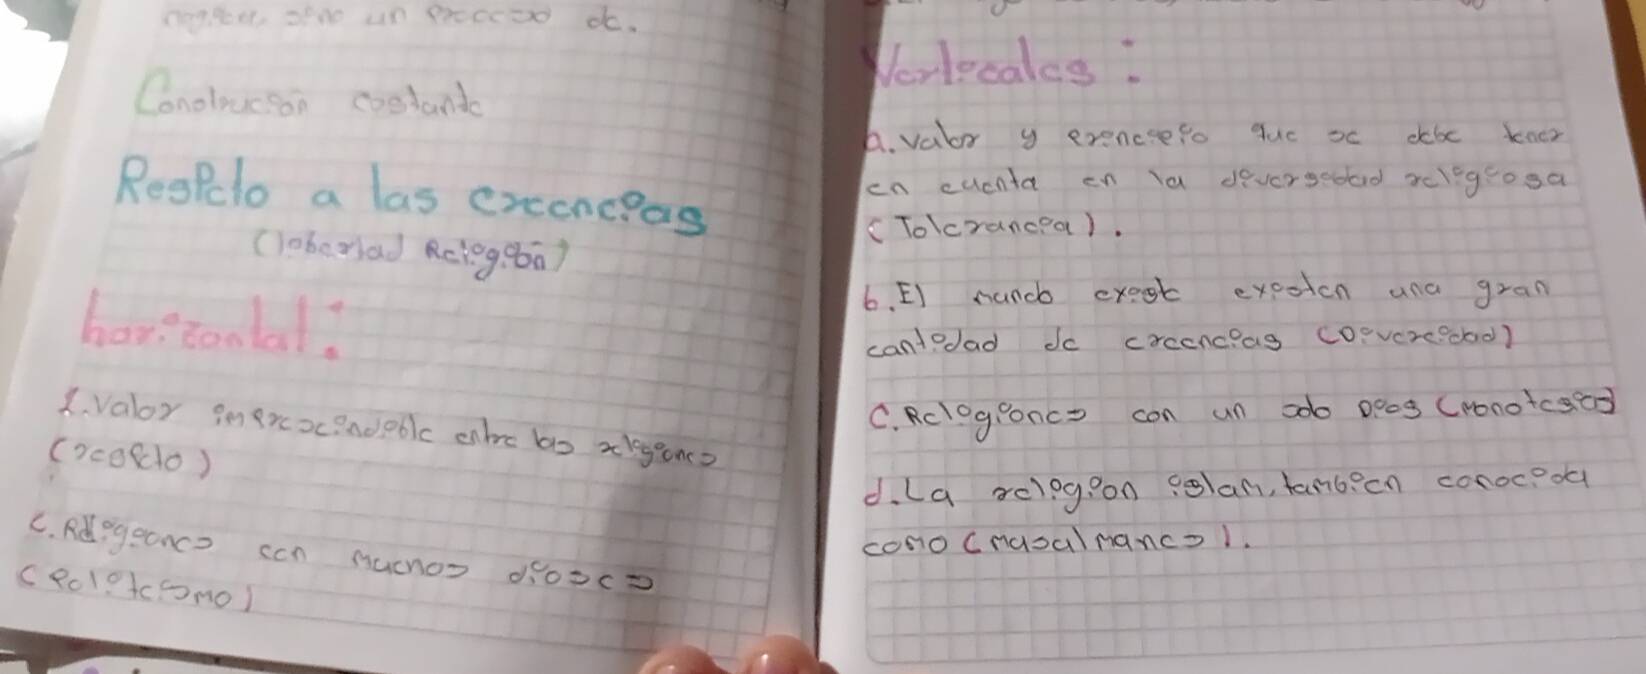 sino un proceso de.
Construcción costante
Respeto a las creencias
(libertad Religión)
horizontal:
1. Valor imprescindible entre las religiones
(respeto)
c. Religiones con muchos dioses
(Politeismo)
Verticales:
a. valor y principio que se debe tener
en cuenta en la diversidad religiosa
(Tolerancia).
b. El mundo existe existen una gran
cantidad de creencias (Diversidad)
c. Religiones con un solo Dios (Monoteismo)
d. La religion islam, tambien conocida
como (musulmanes).